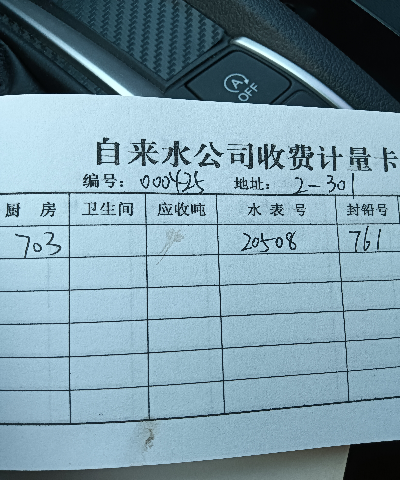 A OFF
自来水公司收费计量卡
编号: 000425 地址: 2-301
厨房 卫生间 应收吨 水表号 封铅号
703 20508 761